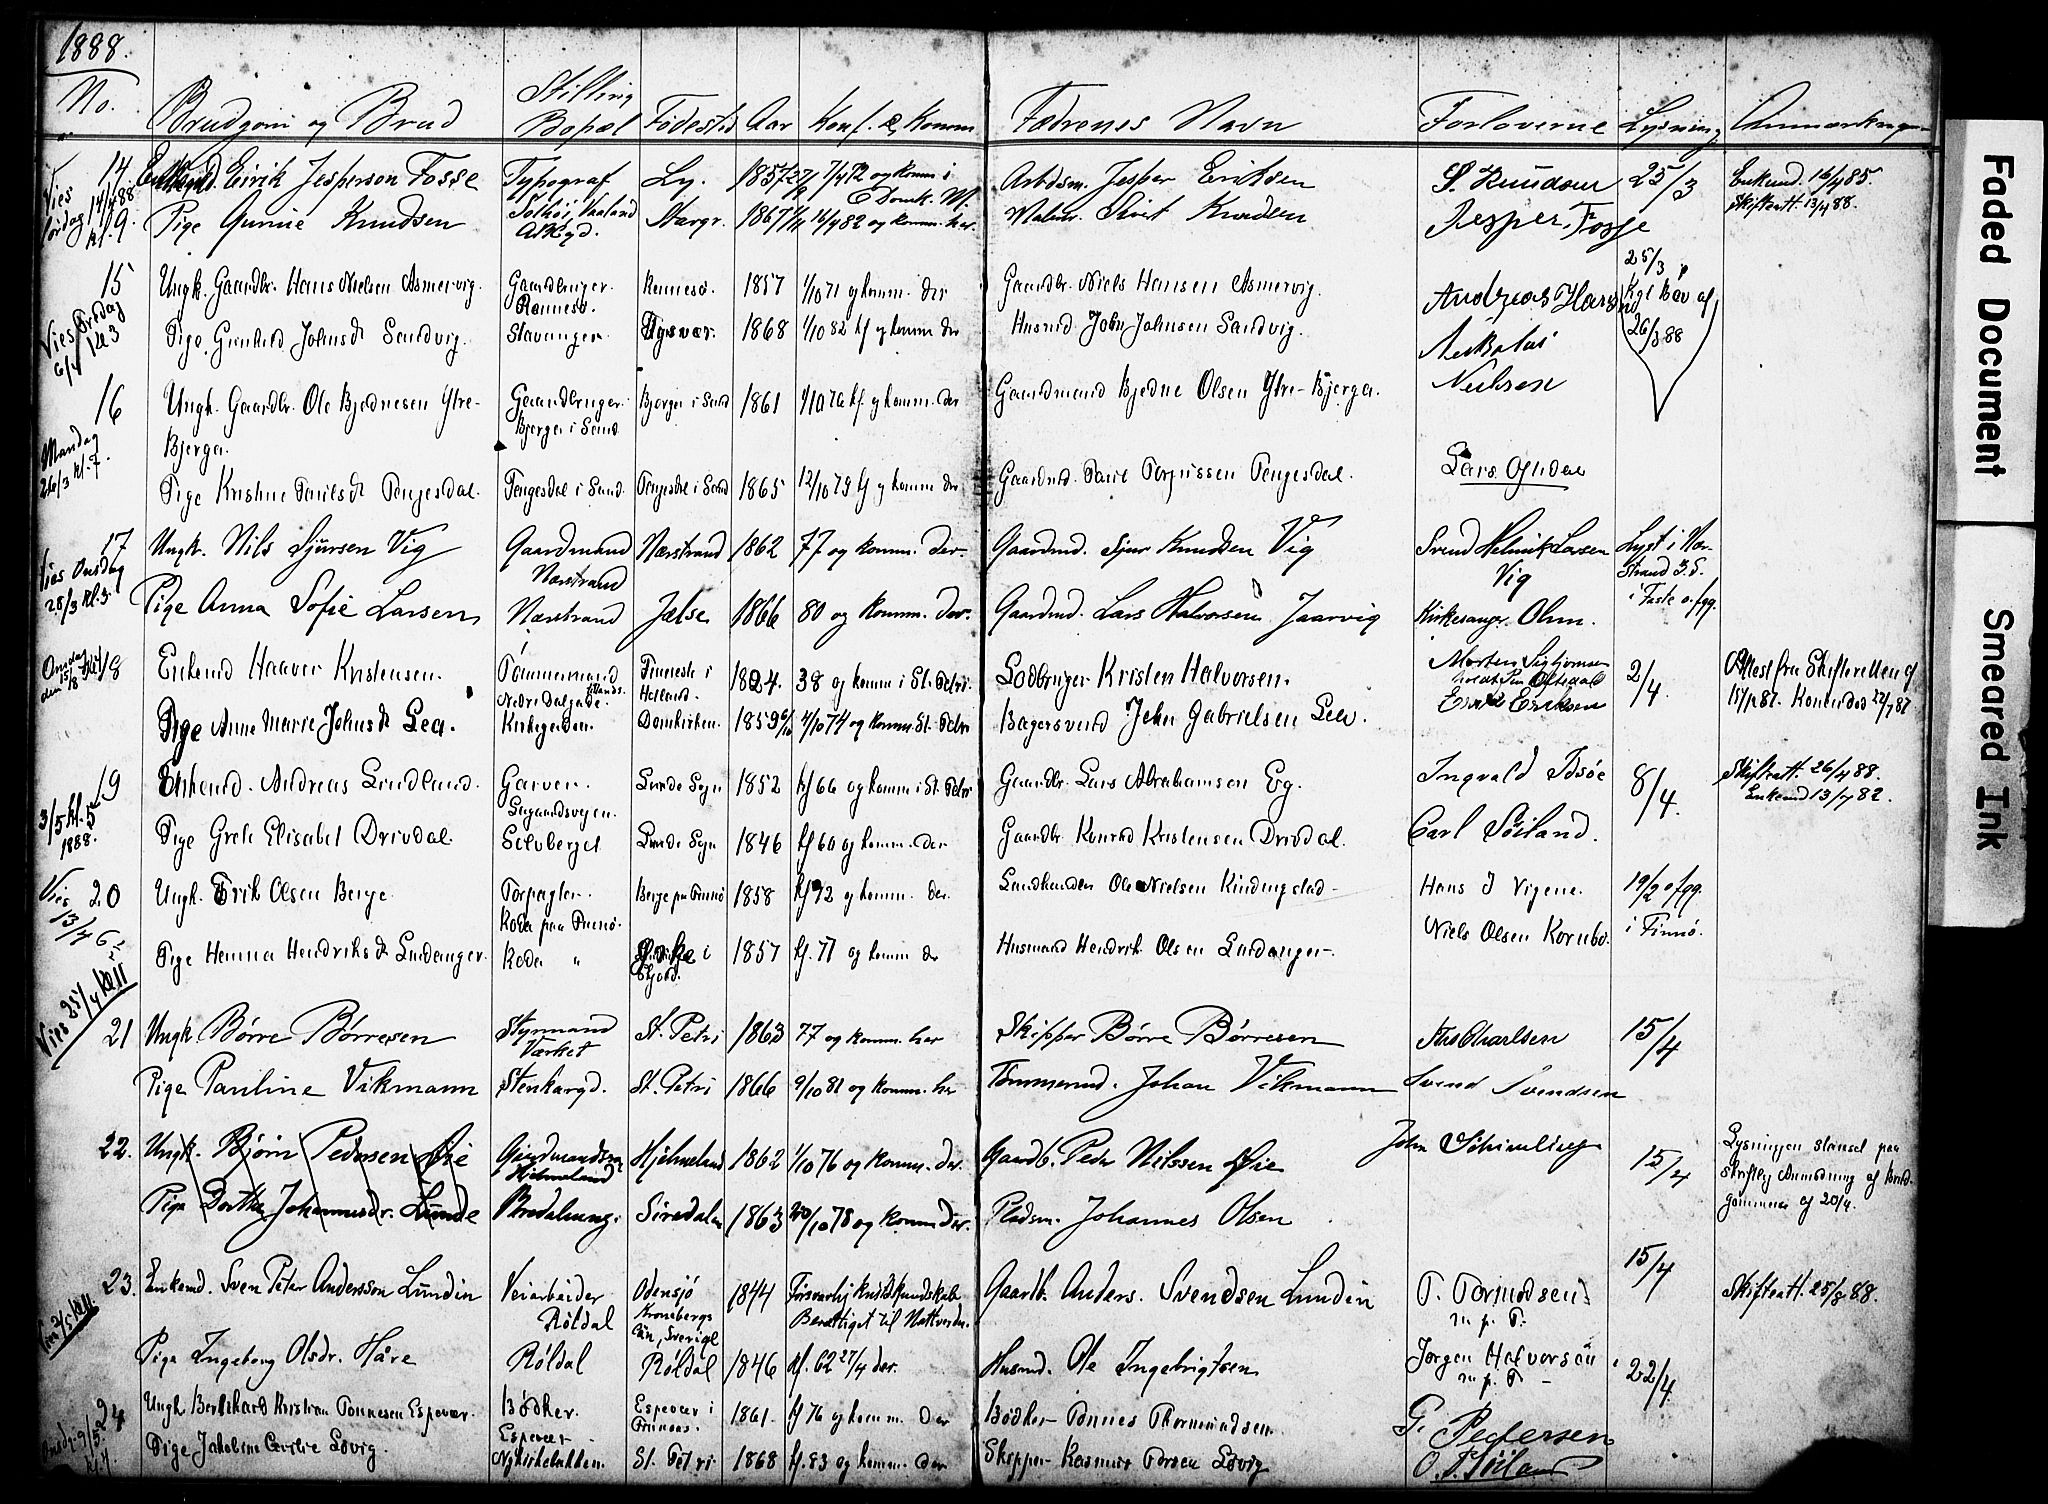 1888.
No. Brudgom og Brud Stilling Bopæl Fødested Aar Konf. & Komm. Fædrenes Navn Forloverne Lysning Anmærkninger
14 Enkemd. Eirik Jesperson Fosse Typograf Ly. 1857 og komm. i Domk. M. Arbdsm. Jesper Eriksen S. Knudsen 25/3 Enkemd. 16/4 85.
Vies Lørdag 14/4 88 kl. 9. Skifteatt. 13/4 88.
Pige Gunnie Knudsen Solhøi, Vaaland 1867 14/4 82 og komm. her. Sivert Knudsen Jesper Fosse
15 Ungk. Gaardbr. Hans Nielsen Asmervig. Gaardbruger. Rennesø. Rennesø. 1857 1/10 71 og komm. der Gaardbr. Niels Hansen Asmervig. Andreas Hansen 25/3 Kgl. Bev. af 26/3 88
Vies Fredag 6/4
Pige Gunhild Johnsd. Sandvig. Stavanger. Tysvær. 1868 1/10 82 kf og komm der Husmd. John Johnsen Sandvig. Nikolai Neilsen
16 Ungk. Gaardbr. Ole Bjødnesen Ytre- Gaardbruger. Bjerga i Sand Bjerga i Sand 1861 1/10 76 kf. og komm. der Gaardmand Bjødne Olsen Ytre-Bjerga.
Bjerga.
Mandag 26/3 kl. 7.
Pige Kristine Paulsd. Tengesdal. Tengesdal i Sand. Tengesdal i Sand 1865 12/10 79 kf og komm der Gaardmd. Paul Torgissen Tengesdal. Lars Oftedal
17 Ungk. Nils Sjursen Vig Gaardmand Nærstrand Nærstrand 1862 77 og komm. der. Gaardmd. Sjur Knudsen Vig Svend Helmik Larsen Vig Lyst i Nærstrand 3. S. i Faste o. fgg.
Vies Onsdag 28/3 kl. 3
Pige Anna Sofie Larsen Nærstrand Jelse 1866 80 og komm. der. Gaardmd. Lars Halvorsen Jaarvig Kirkesanger Olsen.
18 Enkemd Haaver Kristensen. Tømmermand Nedre Dalgade. 1824. 38 og komm i St. Petri. Lodbruger Kristen Halvorsen. Morten Sigbjørnsen 2/4. Attest fra Skifteretten af
Onsdag den 15/8 Konen død
Pige Anne Marie Johnsd Lea. Kirkegaden. Domkirken. 1859 4/10 74 og komm. St. Petri Bagersvend John Gabrielsen Lea. Eriksen
19 Enkemd. Andreas Lindland. Garver. Lagaardsvejen. Lunde Sogn 1852 kf 66 og komm i St. Petri Gaardbr. Lars Abrahamsen Eg. Ingvald Idsøe 8/4. Skifteatt. 26/4 88. Enkemd 13/7 82.
3/5 kl. 5 1888.
Pige Grete Elisabet Drivdal. Sølvberget Lunde Sogn 1846 kf 60 og komm. der Gaardbr. Konrad Kristensen Drivdal. Carl Söiland.
20 Ungk. Erik Olsen Berge. Forpagter. Berge paa Finnø 1858 kf 72 og komm. der Landhandler Ole Nielsen Kindingstad Hans J Vigene. 19/2 o. fgg. i Finnø.
Vies 13/4
Pige Hanna Hendriksd. Landanger. " 1857 kf. 71 og komm der Husmand Hendrik Olsen Landanger. Niels Olsen Kornbø.
Vies 25/4 kl. 11
21 Ungk. Børre Børresen Styrmand Værket St. Petri 1863 77 og komm. her Skipper Børre Børresen Ths Charlsen 15/4
Pige Pauline Vikmann Stenkargd. St. Petri 1866 9/10 81 og komm. her Tømmermd. Johan Vikmann Svend Svendsen
22. Ungk. Bjørn Pedersen Øie Gaardmandssøn Hjelmeland Hjelmeland 1862 1/10 76 og komm. der. Gaardb. Peder Nilssen Øie John Schimeling 15/4 Lysningen standset paa
skriftlig Anmodning af Brudgommen af 20/4.
Pige Dorthea Johannesdr. Lunde Bredalung. Siredalen 1863 20/10 78 og komm der. Pladsm. Johannes Olsen
23. Enkemd. Sven Peter Andersson Lundin Veiarbeider Röldal Odensjö Kronobergs Län, Sverige 1844 Försvarlig kristdkundskab Berättiget til Nattverden Gaardb. Anders Svendsen Lundin T. Tormodsen m. p. P. 15/4 Skifteatt. 25/3 88.
Pige Ingeborg Olsdr. Håre Röldal Röldal 1846 kf. 62 27/4 der. Husmd. Ole Ingebrigtsen Jørgen Halvorsen m. p. P. 22/4.
24 Ungk. Bernhard Kristian Tønnesen Espevær. Bødker. Espevær Espevær i Finnaas. 1861. kf 76 og komm. der Bødker Tønnes Thormundsen G. Pedersen
Pige Jakobine Cecilie Løvig. Nykirkebakken. St. Petri 1868 kf. 83 og komm. der Skipper Rasmus Larsen Løvig O. T. Söiland
Faded Document
Smeared Ink